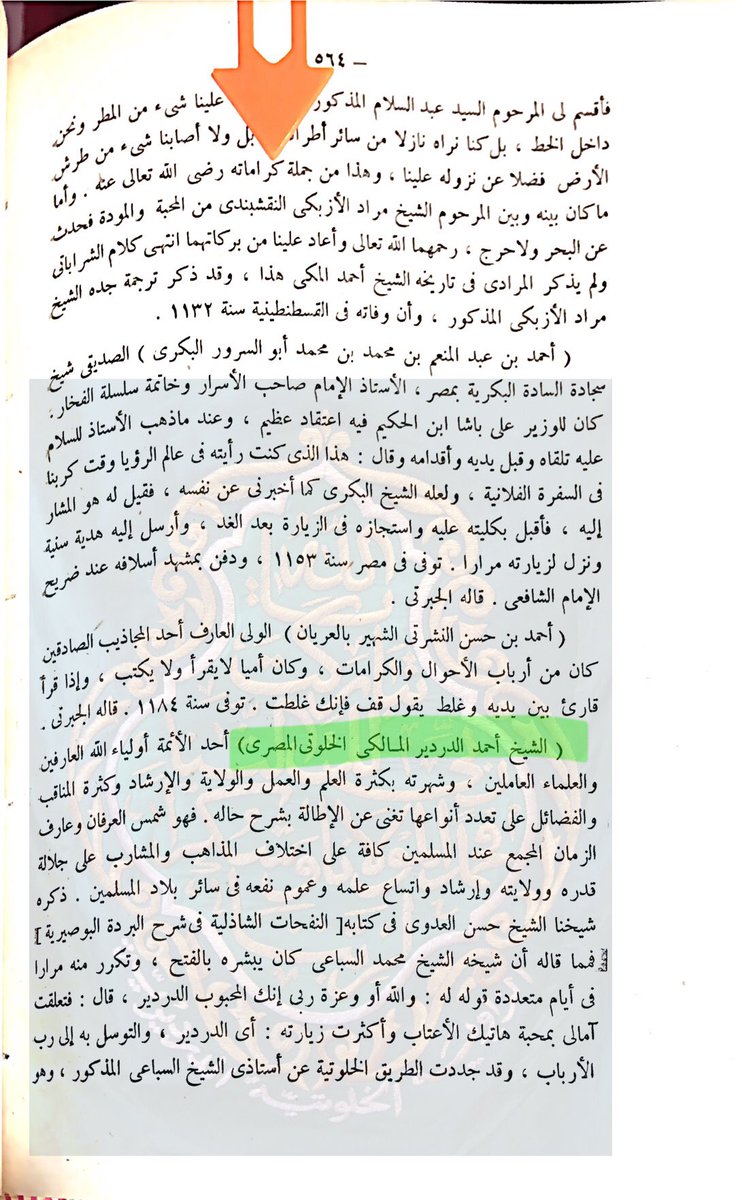 — ٥٦٤
فأقسم لى المرحوم السيد عبد السلام المذكور علينا شىء من المطر ونحن
داخل الخط ، بل كنا نراه نازلا من سائر بل ولا أصابنا شىء من طرش
الأرض فضلا عن نزوله علينا ، وهذا من جملة كراماته رضى الله تعالى عنه . وأما
ماكان بينه وبين المرحوم الشيخ مراد الأزبكى النقشبندى من المحبة والمودة فحدث
عن البحر ولاحرج ، رحمهما الله تعالى وأعاد علينا من بركاتهما انتهى كلام الشراباتى
ولم يذكر المرادى فى تاريخه الشيخ أحمد المكى هذا ، وقد ذكر ترجمة جده الشيخ
مراد الأزبكى المذكور ، وأن وفاته فى القسطنطينية سنة ١١٣٢ .
( أحمد بن عبد المنعم بن محمد بن محمد أبو السرور البكرى ) الصديقى شيخ
سجادة السادة البكرية بمصر ، الأستاذ الإمام صاحب الأسرار وخاتمة سلسلة الفخار .
كان للوزير على باشا ابن الحكيم فيه اعتقاد عظيم ، وعند ماذهب الأستاذ للسلام
عليه تلقاه وقبل يديه وأقدامه وقال : هذا الذى كنت رأيته فى عالم الرؤيا وقت كربنا
فى السفرة الفلانية ، ولعله الشيخ البكرى كما أخبرنى عن نفسه ، فقيل له هو المشار
إليه ، فأقبل بكليته عليه واستجازه فى الزيارة بعد الغد ، وأرسل إليه هدية سنية
ونزل لزيارته مرارا . توفى فى مصر سنة ١١٥٣ ، ودفن بمشهد أسلافه عند ضريح
الإمام الشافعى . قاله الجبرتى .
( أحمد بن حسن النشرتى الشهير بالعريان ) الولى العارف أحد المجاذيب الصادقين
كان من أرباب الأحوال والكرامات ، وكان أميا لايقرأ ولا يكتب ، وإذا قرأ
قارئ بين يديه وغلط يقول قف فإنك غلطت . توفى سنة ١١٨٤ . قاله الجبرتى .
( الشيخ أحمد الدردير المالكى الخلوتى المصرى ) أحد الأئمة أولياء الله العارفين
والعلماء العاملين ، وشهرته بكثرة العلم والعمل والولاية والإرشاد وكثرة المناقب
والفضائل على تعدد أنواعها تغنى عن الإطالة بشرح حاله . فهو شمس العرفان وعارف
الزمان المجمع عند المسلمين كافة على اختلاف المذاهب والمشارب على جلالة
قدره وولايته وإرشاد واتساع علمه وعموم نفعه فى سائر بلاد المسلمين . ذكره
شيخنا الشيخ حسن العدوى فى كتابه [ النفحات الشاذلية فى شرح البردة البوصيرية ]
فمما قاله أن شيخه الشيخ محمد السباعى كان يبشره بالفتح ، وتكرر منه مرارا
فى أيام متعددة قوله له : والله أو وعزة ربى إنك المحبوب الدردير ، قال : فتعلقت
آمالى بمحبة هاتيك الأعتاب وأكثرت زيارته : أى الدردير ، والتوسل به إلى رب
الأرباب ، وقد جددت الطريق الخلوتية عن أستاذى الشيخ السباعى المذكور ، وهو
الخلوتية